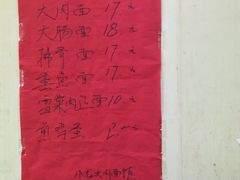 大肉面 17.元
大肠面 18.元
排骨面 17.元
素浇面 17.元
雪菜肉丝面 10.元
煎荷蛋 2.元
大肉面馆